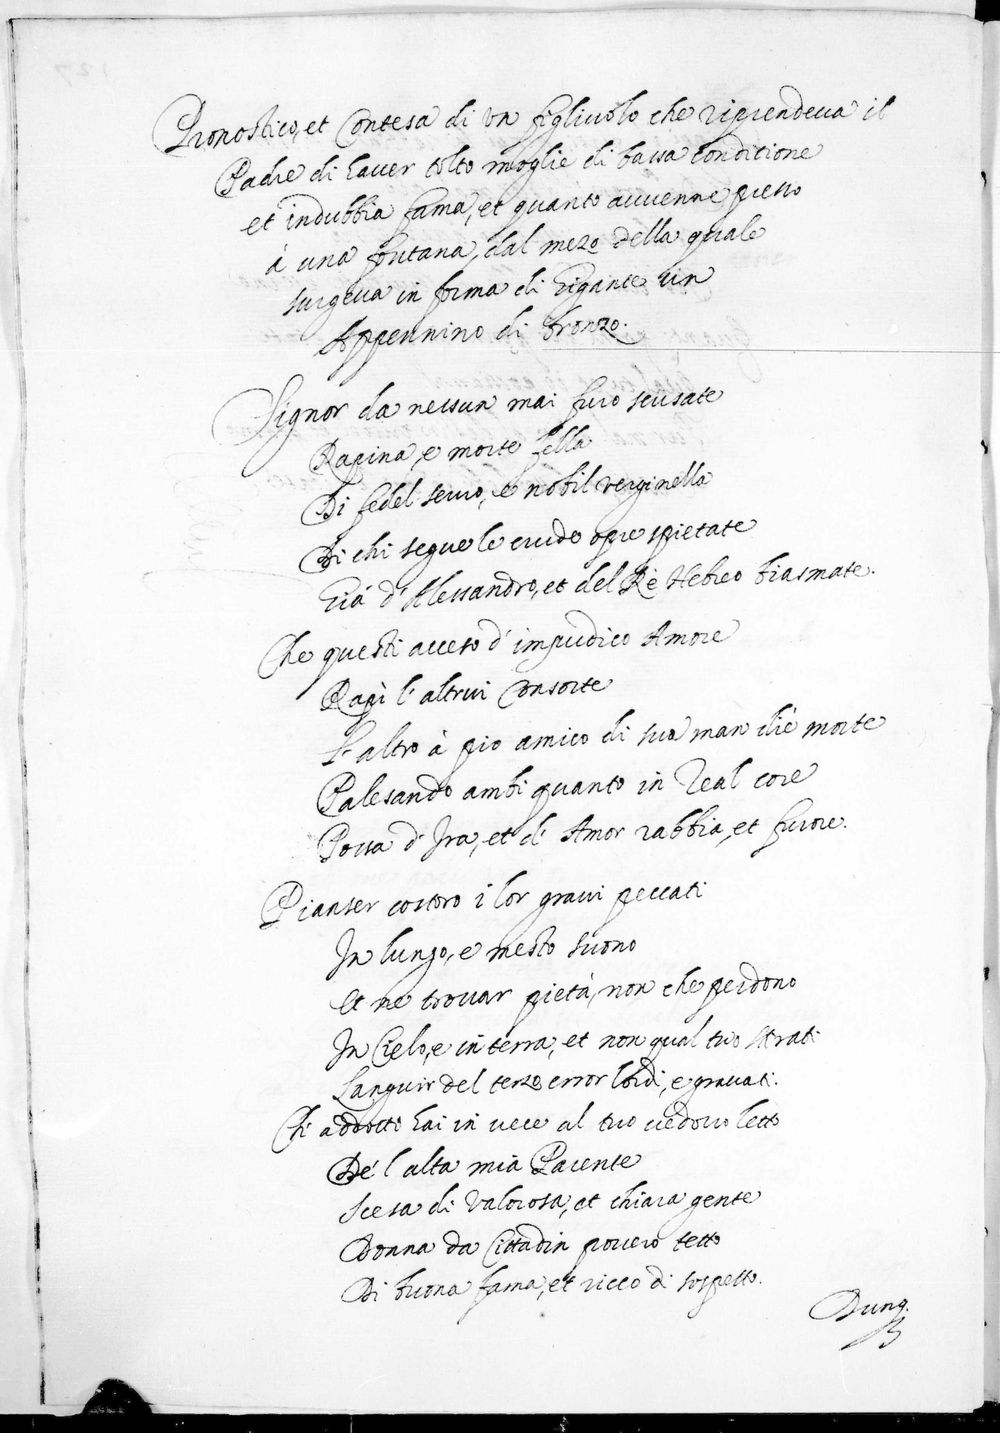 Pronostico, et Contesa di un figliuolo che riprendeva il
Padre di haver tolto moglie di bassa conditione
et indubbia fama, et quanto avvenne presso
à una fontana, dal mezo della quale
surgeva in forma di Gigante un
Appennino di bronzo.
Signor da nessun mai furo scusate
Rapina, e morte fella
Di fedel servo, e nobil verginella
Di chi segue le crude opre spietate
Già d'Alessandro, et del Rè Hebreo biasmate.
Che questi acceso d'impudico Amore
Rapì l'altrui Consorte
L'altro à pio amico di sua man diè morte
Palesando ambi quanto in Real core
Possa d'Ira, et d'Amor rabbia, et furore.
Pianser costoro i lor gravi peccati
In lungo, e mesto suono
Et ne trovar pietà, non che perdono
In Cielo, e in terra, et non qual tuo strati
Languir del terzo error lordi, e gravati.
Ch'addotto hai in vece al tuo vedovo letto
De l'alta mia Parente
Scesa di valorosa, et chiara gente
Donna da Cittadin povero tetto
Di buona fama, et ricco di sospetto.
Dunq.